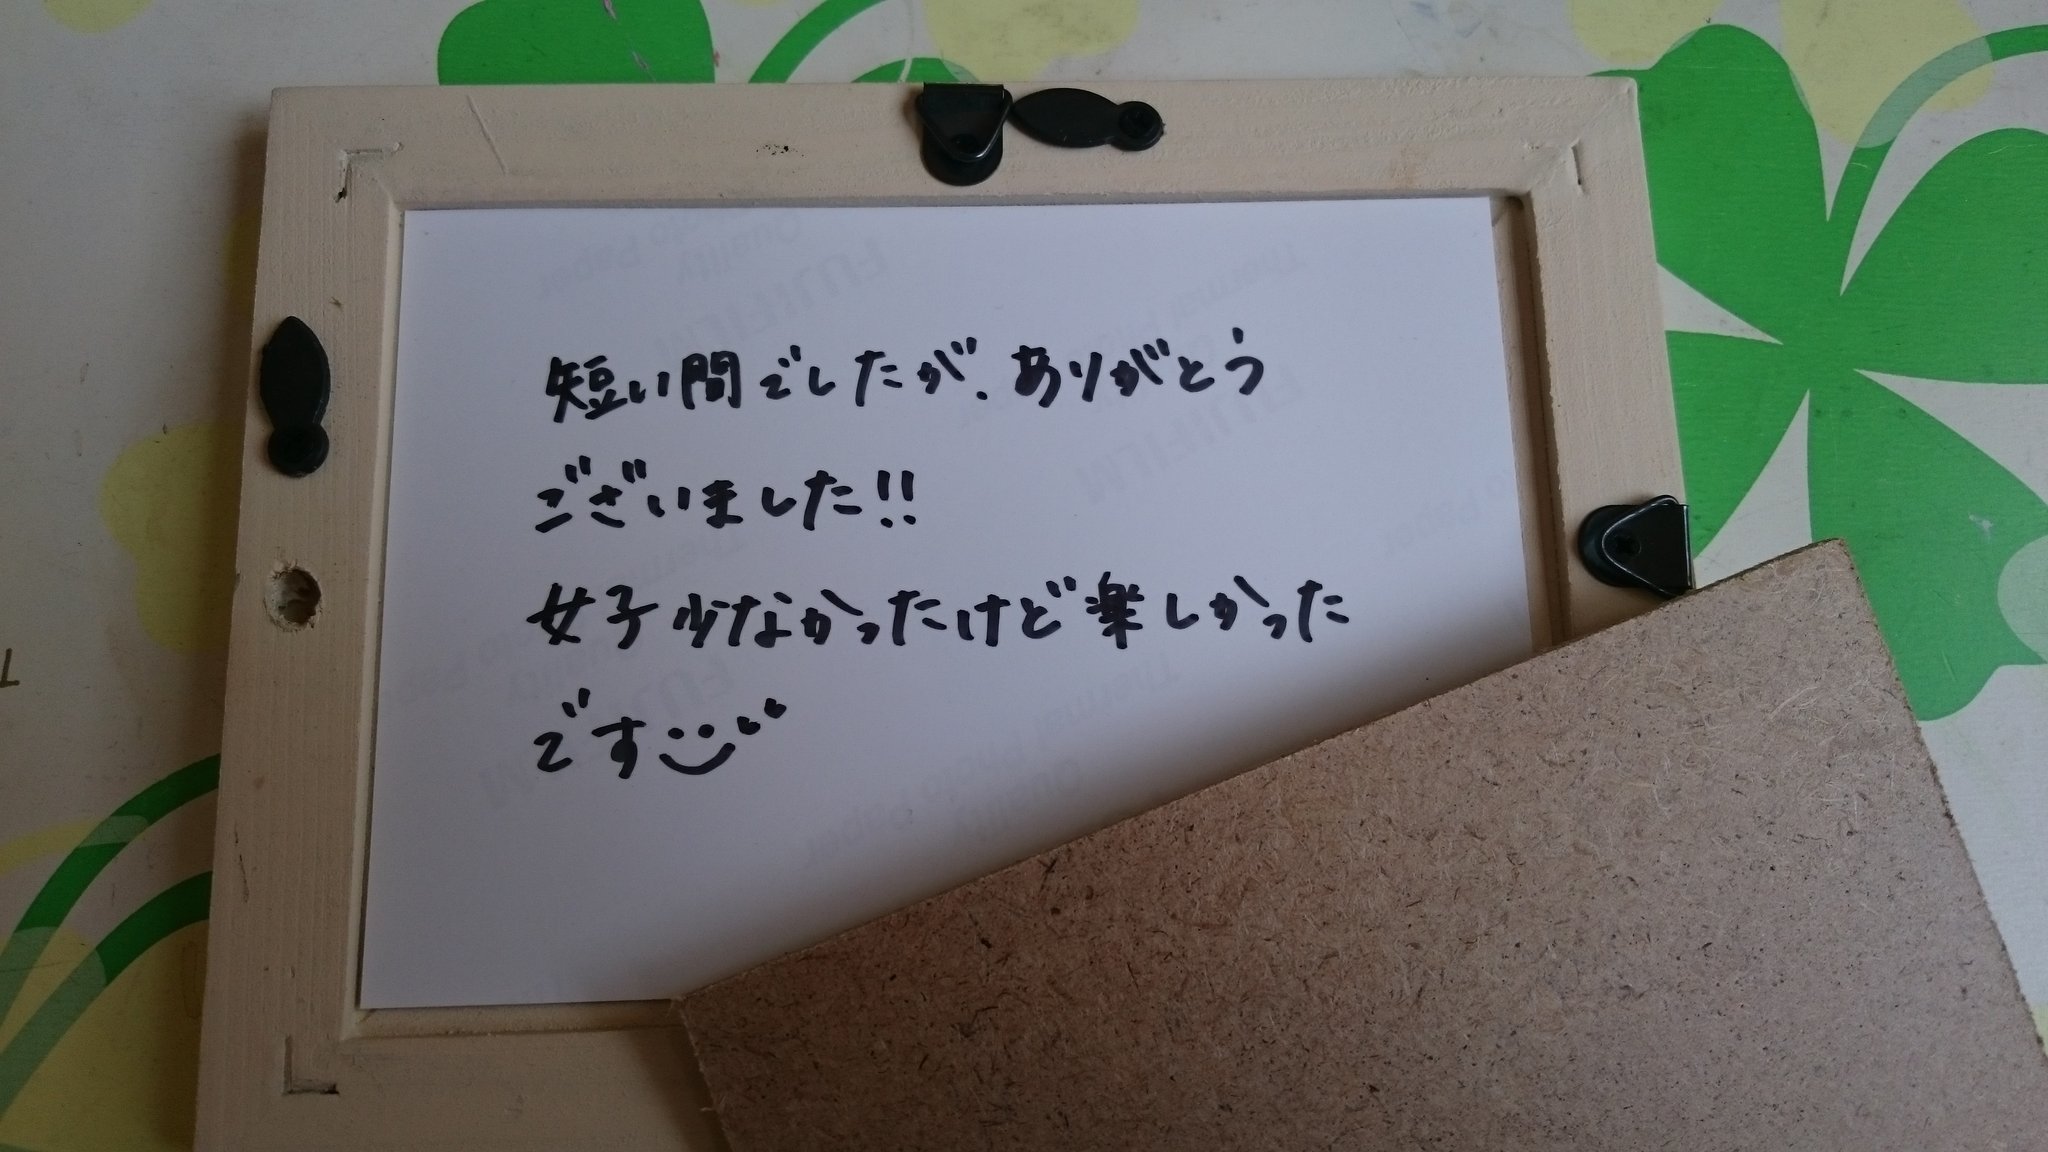 短い間でしたが、ありがとう
ございました!!
女子少なかったけど楽しかった
です